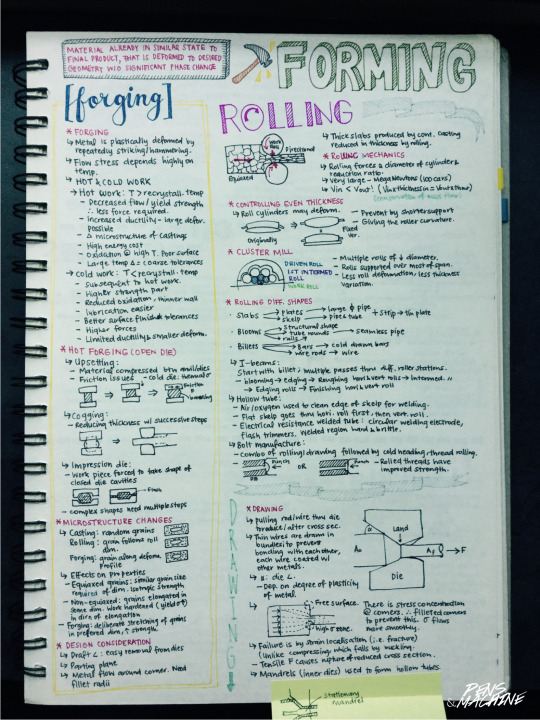 MATERIAL ALREADY IN SIMILAR STATE TO
FINAL PRODUCT, THAT IS DEFORMED TO DESIRED
GEOMETRY W/O SIGNIFICANT PHASE CHANGE
FORMING
[forging]
* FORGING
↳ Metal is plastically deformed by
repeatedly striking/hammering.
↳ Flow stress depends highly on
temp.
↳ HOT & COLD WORK
↳ Hot work: T > recrystall. temp
- Decreased flow/yield strength
∴ less force required.
- Increased ductility - large defor.
possible
- Δ microstructure of castings
- High energy cost
- Oxidation @ high T. Poor surface
- Large temp Δ = coarse tolerances
↳ Cold work: T < recrystall. temp
- Subsequent to hot work.
- Higher strength part
- Reduced oxidation, thinner wall
- lubrication easier
- Better surface finish & tolerances
- Higher forces
- Limited ductility & smaller deform.
* HOT FORGING (OPEN DIE)
↳ Upsetting:
- Material compressed btw anvil/dies
- Friction issues
- cold die: thermal σ
Friction
↳ Cogging:
- Reducing thickness w/ successive steps
↳ Impression die:
- Work piece forced to take shape of
closed die cavities
- complex shapes need multiple steps
* MICROSTRUCTURE CHANGES
↳ Casting: random grains
Rolling: grain follows roll
dirn.
Forging: grain along deform.
profile
↳ Effects on Properties
- Equiaxed grains: similar grain size
required of dirn. Isotropic strength
- Non-equiaxed: grains elongated in
some dirn. Work hardened (yield σ↑)
in dirn of elongation
- Forging: deliberate stretching of grains
in preferred dirn, ↑ strength.
* DESIGN CONSIDERATION
↳ Draft ∠: easy removal from dies
↳ Parting plane
↳ Metal flow around corner. Need
fillet radii
ROLLING
Work Roll
Equiaxed
Directional
↳ Thick slabs produced by cont. casting
reduced in thickness by rolling.
* ROLLING MECHANICS
↳ Rolling forces α diameter of cylinder &
reduction ratio.
↳ Very large - MegaNewtons (100 cars)
↳ Vin < Vout!
* CONTROLLING EVEN THICKNESS
↳ Roll cylinders may deform.
Originally
Fixed
Ver.
- Prevent by shorter support
- Giving the roller curvature.
* CLUSTER MILL
DRIVEN ROLL
1ST INTERMED
ROLL
WORK ROLL
- Multiple rolls of ↓ diameter.
- Rolls supported over most of span.
- Less roll deformation, less thickness
variation.
* ROLLING DIFF. SHAPES
· Slabs → plates → large ϕ pipe
skelp → pipe & tube
+ Strip → tin plate
· Blooms → Structural shape
tube rounds → seamless pipe
rails
· Billets → Bars → cold drawn bars
wire rods → wire
↳ I-beams:
Start with billet; multiple passes thru diff. roller stations.
- blooming → edging → Roughing hori & vert rolls → intermed. "
→ Edging rolls → Finishing hori & vert roll
↳ Hollow tube:
- Air/oxygen used to clean edge of skelp for welding.
- Flat skelp goes thru hori. roll first, then vert. roll.
- Electrical resistance welded tube: circular welding electrode,
flash trimmers, welded region hard & brittle.
↳ Bolt manufacture:
- Combo of rolling/drawing followed by cold heading, thread rolling.
Punch
OR
Punch
- Rolled threads have
improved strength.
DRAWING
* DRAWING
↳ pulling rod/wire thru die
to reduce/alter cross sec.
↳ Thin wires are drawn in
bundles; to prevent
bonding with each other,
each wire coated w/
other metals.
↳ α: die ∠.
- Dep. on degree of plasticity
of metal.
α
Land
Ao
Af
F
Die
Free surface.
high σ zone.
There is stress concentration
@ corners. ∴ filleted corners
to prevent this. σ flows
more smoothly.
↳ Failure is by strain localisation (i.e. fracture)
(Unlike compressing which fails by buckling.
- Tensile F causes rupture of reduced cross section.
↳ Mandrels (inner dies) used to form hollow tubes.
stationary
mandrel
PENS
& MACHINE